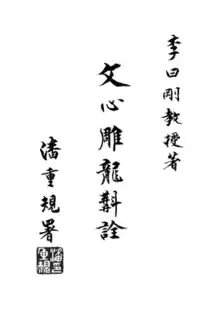 李曰剛教授著
文心雕龍斠詮
潘重規署
潘重規